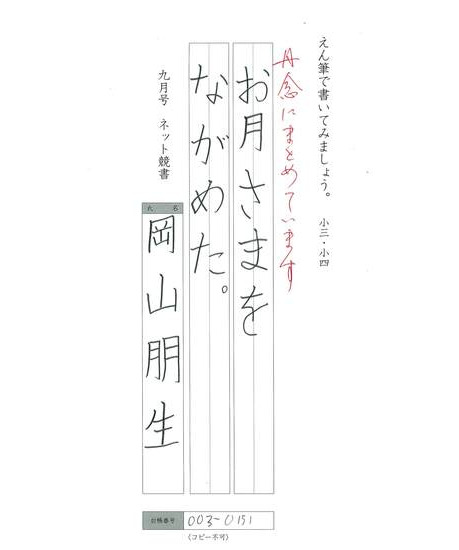 えん筆で書いてみましょう。 小三・小四
丹念にまとめています
お月さまを
ながめた。
九月号 ネット競書
氏 名
岡山朋生
台帳番号 003-0151
(コピー不可)